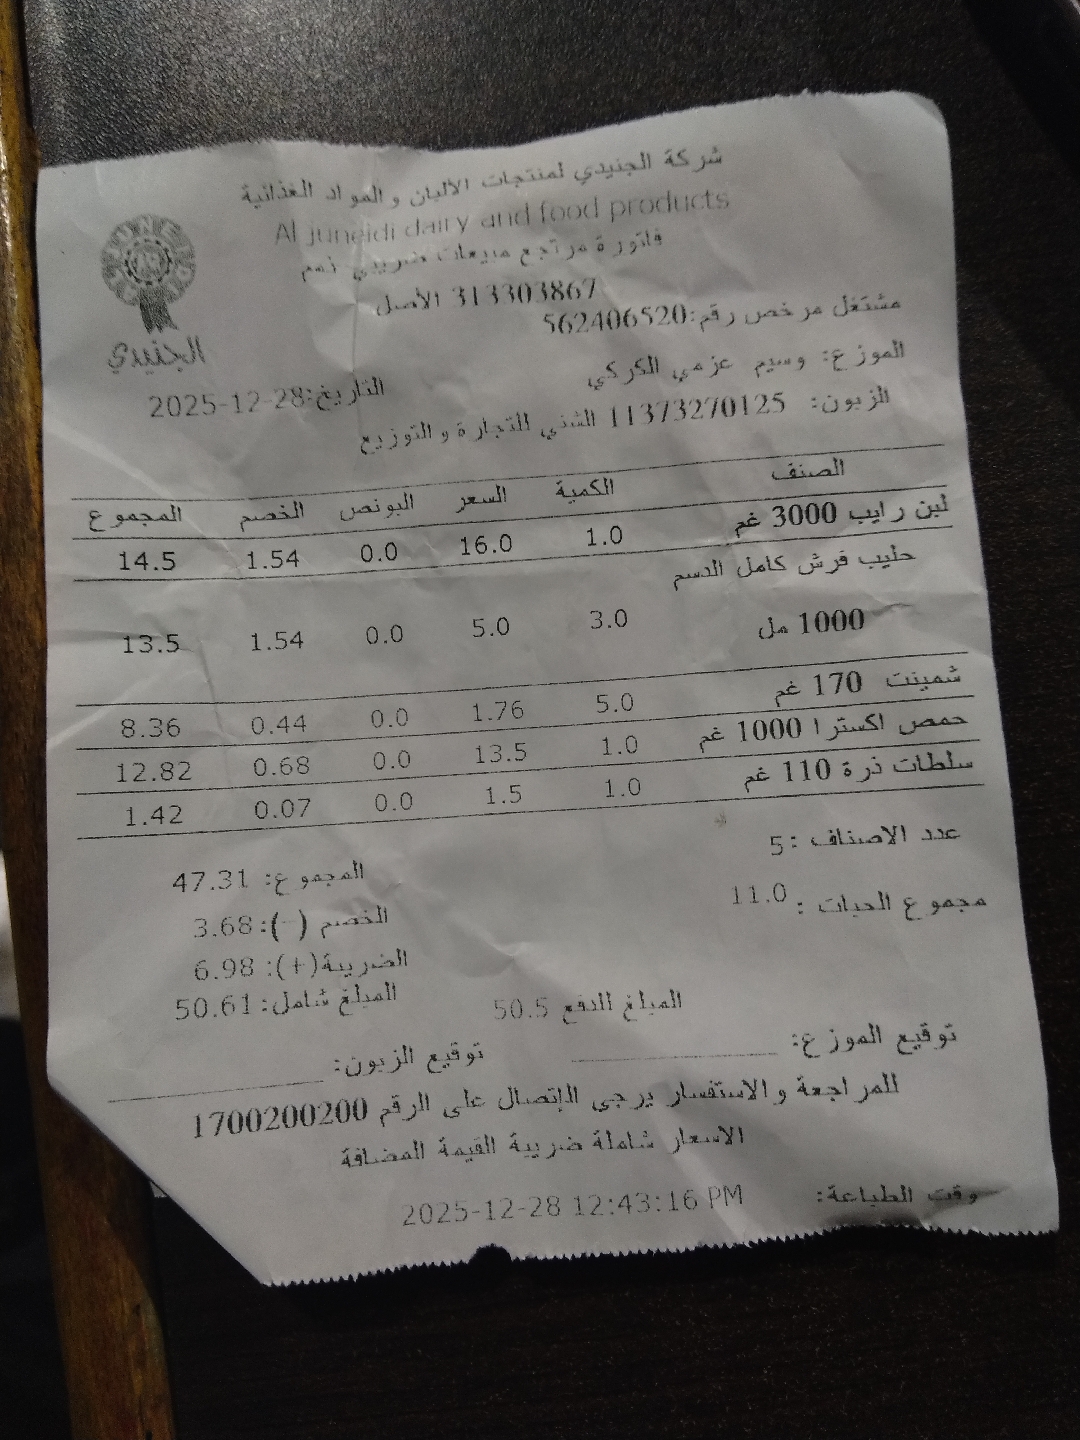 شركة الجنيدي لمنتجات الألبان والمواد الغذائية
Al juneidi dairy and food products
فاتورة مرتجع مبيعات ضريبي ذمم
313303867 الأصل
مشتغل مرخص رقم:562406520
الجنيدي
الموزع: وسيم عزمي الكركي
التاريخ:2025-12-28
الزبون: 11373270125 الشني للتجارة والتوزيع
الصنف الكمية السعر البونص الخصم المجموع
لبن رايب 3000 غم 1.0 16.0 0.0 1.54 14.5
حليب فرش كامل الدسم
1000 مل 3.0 5.0 0.0 1.54 13.5
شمينت 170 غم 5.0 1.76 0.0 0.44 8.36
حمص اكسترا 1000 غم 1.0 13.5 0.0 0.68 12.82
سلطات ذرة 110 غم 1.0 1.5 0.0 0.07 1.42
عدد الاصناف :5
المجموع: 47.31
مجموع الحبات : 11.0
الخصم (-):3.68
الضريبة(+): 6.98
المبلغ شامل: 50.61
المبلغ للدفع 50.5
توقيع الموزع:
توقيع الزبون:
للمراجعة والاستفسار يرجى الإتصال على الرقم 1700200200
الاسعار شاملة ضريبة القيمة المضافة
وقت الطباعة: 2025-12-28 12:43:16 PM